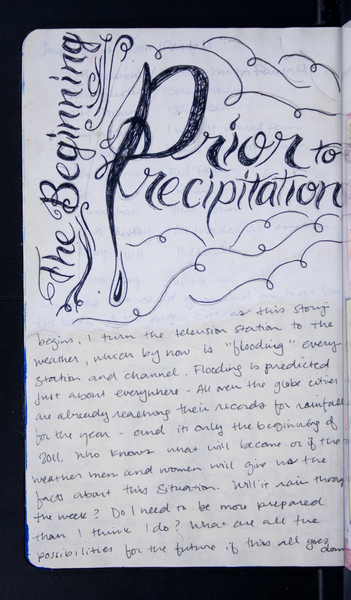 The Beginning
Prior to
Precipitation
as this story
begins, I turn the television station to the
weather, which by now is "flooding" every
station and channel. Flooding is predicted
just about everywhere - All over the globe cities
are already reaching their records for rainfall
for the year - and its only the beginning of
2011. Who knows what will become or if the
weather men and women will give us the
facts about this situation. Will it rain through
the week? Do I need to be more prepared
than I think I do? What are all the
possibilities for the future if this all goes down